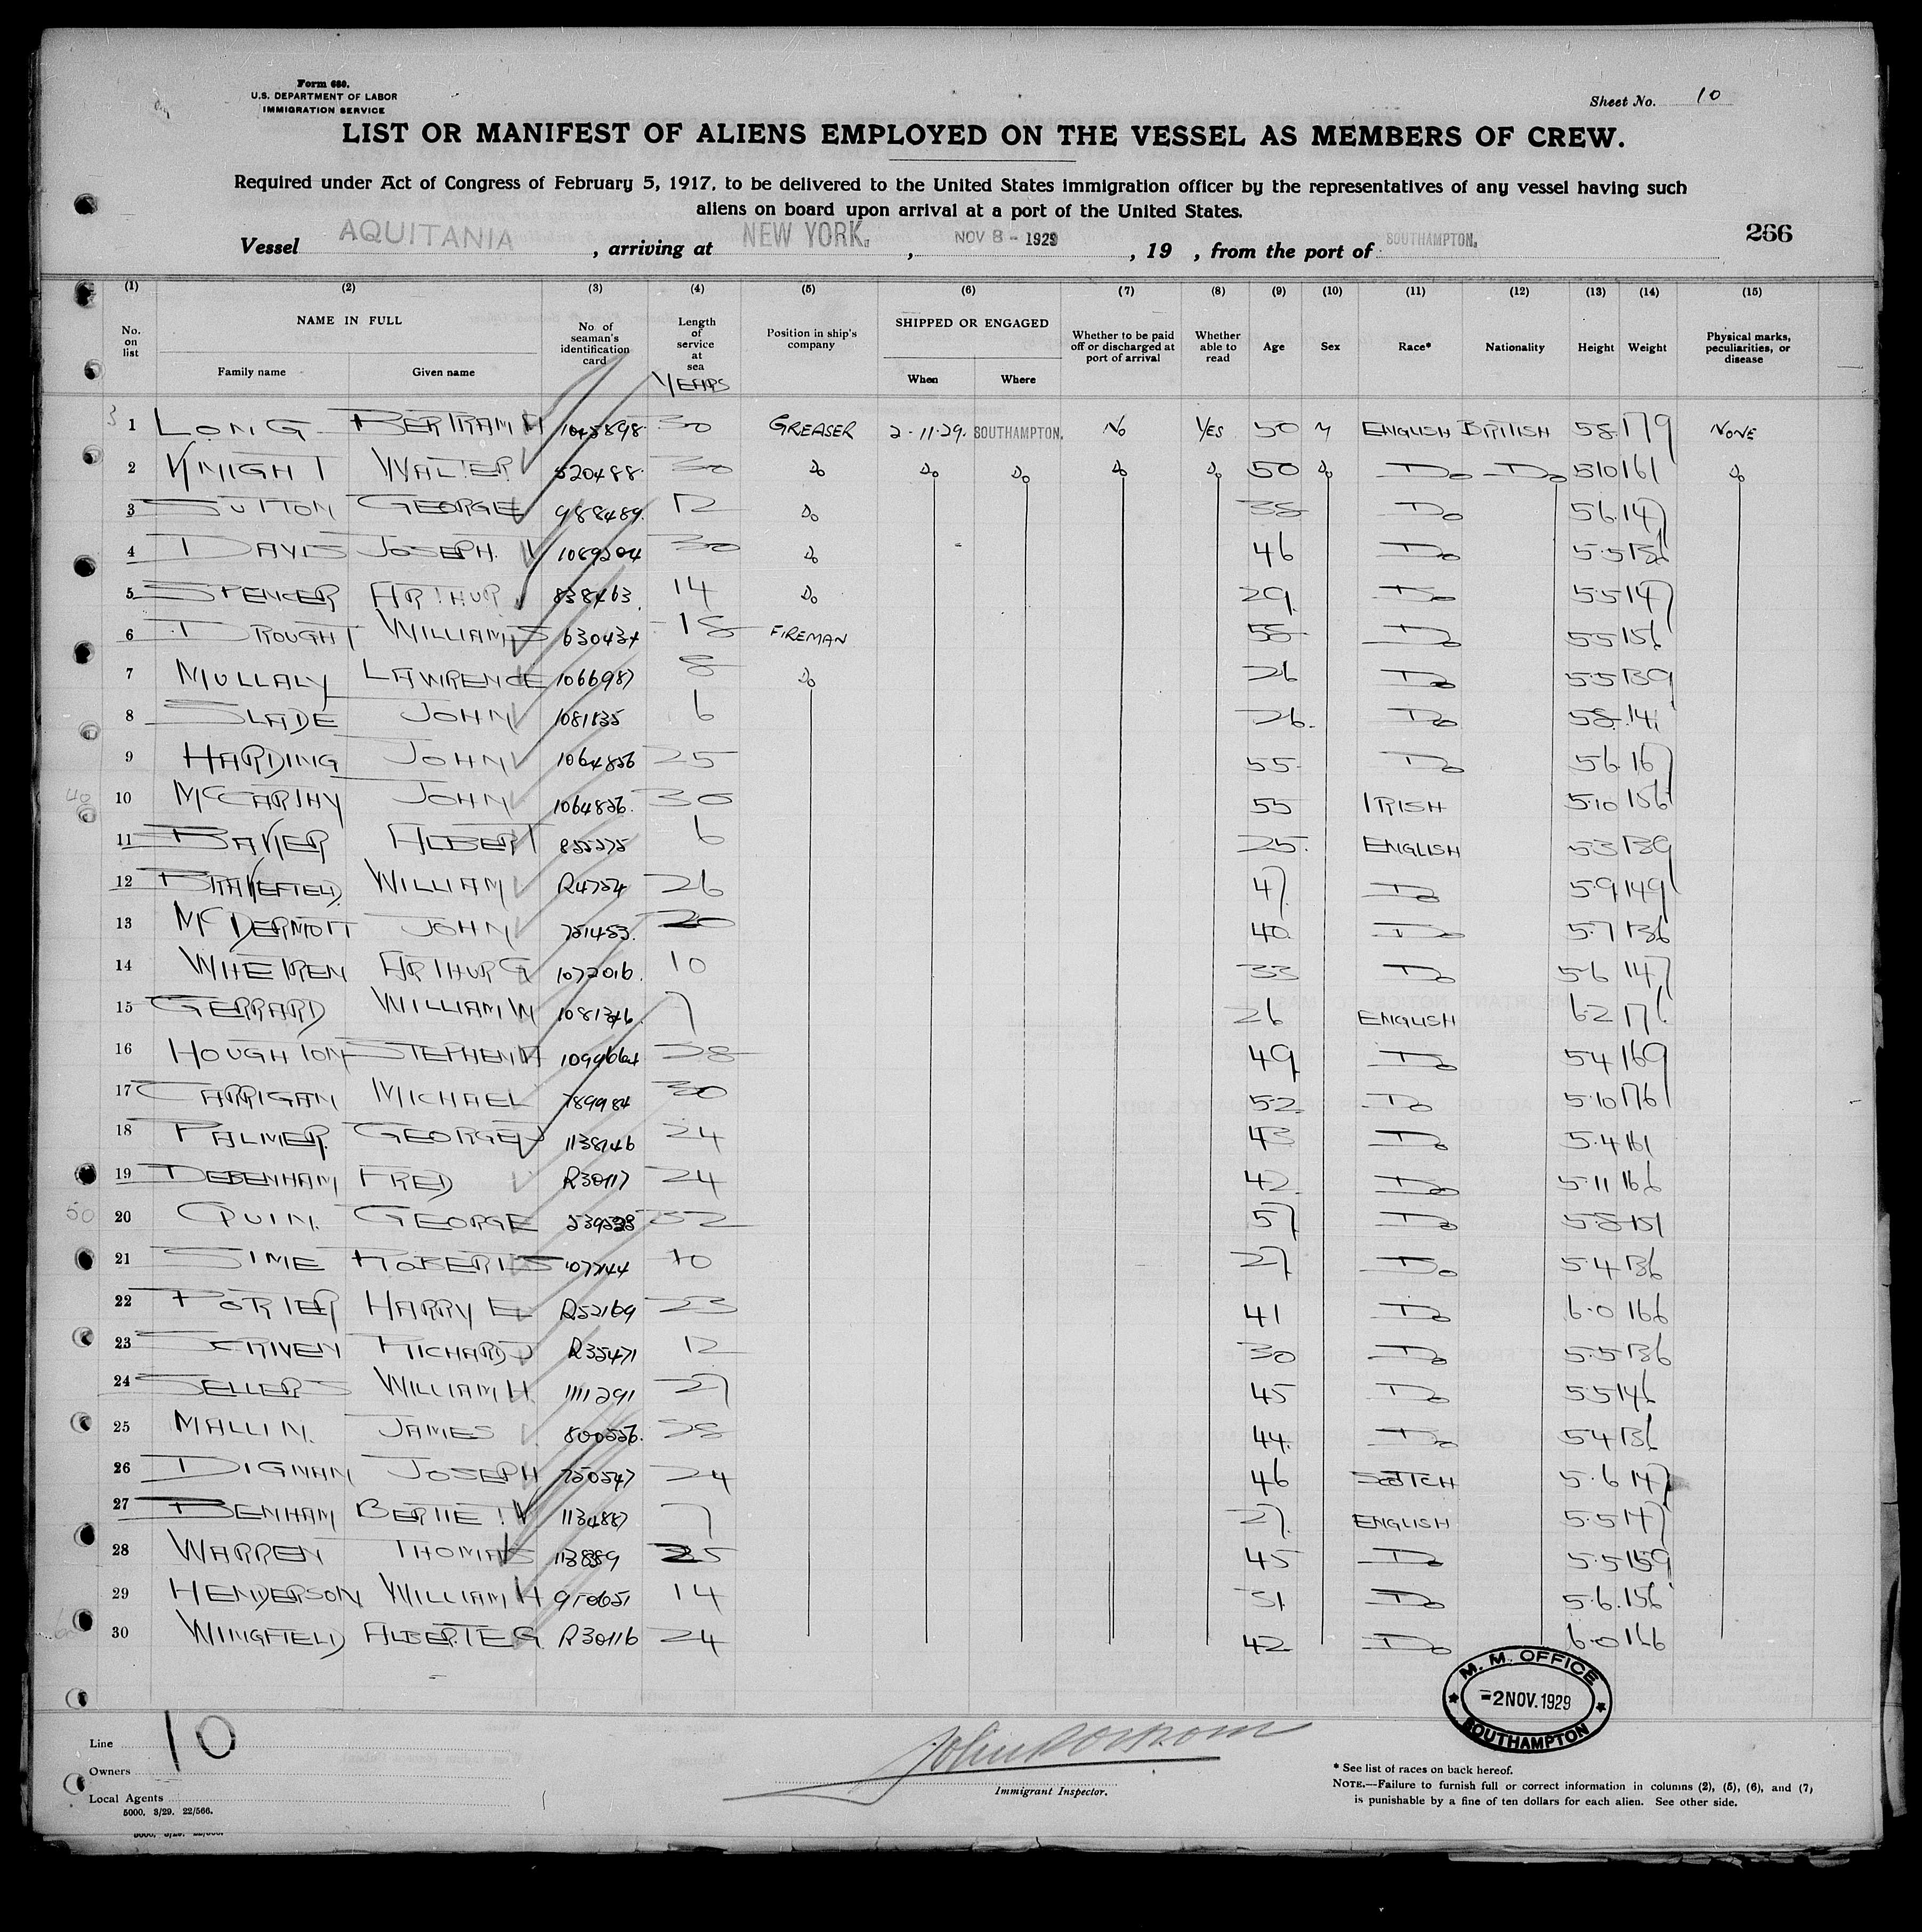 Form 680.
U.S. DEPARTMENT OF LABOR
IMMIGRATION SERVICE
Sheet No. 10
LIST OR MANIFEST OF ALIENS EMPLOYED ON THE VESSEL AS MEMBERS OF CREW.
Required under Act of Congress of February 5, 1917, to be delivered to the United States immigration officer by the representatives of any vessel having such
aliens on board upon arrival at a port of the United States.
266
Vessel AQUITANIA, arriving at NEW YORK, NOV 8 - 1929, 19 , from the port of SOUTHAMPTON.
(1) (2) (3) (4) (5) (6) (7) (8) (9) (10) (11) (12) (13) (14) (15)
No. on list NAME IN FULL Family name Given name No. of seaman's identification card Length of service at sea YEARS Position in ship's company SHIPPED OR ENGAGED When Where Whether to be paid off or discharged at port of arrival Whether able to read Age Sex Race* Nationality Height Weight Physical marks, peculiarities, or disease
1 LONG BERTRAM H 1045898 30 GREASER 2-11-29. SOUTHAMPTON. NO YES 50 M ENGLISH BRITISH 58 179 NONE
2 KNIGHT WALTER 520488 30 Do Do Do Do Do 50 Do Do Do 510 161 Do
3 SUTTON GEORGE 988489 12 Do 38 Do 56 147
4 DAVIS JOSEPH. 1089204 30 Do 46 Do 5.5 136
5 SPENCER ARTHUR 838463 14 Do 29 Do 5.5 147
6 DROUGHT WILLIAM S 630434 18 FIREMAN 58 Do 55 156
7 MULLALY LAWRENCE 1066987 8 Do 26 Do 5.5 139
8 SLADE JOHN 1081835 6 26. Do 58. 141
9 HARDING JOHN 1064856 25 55 Do 56 167
10 MCCARTHY JOHN 1064826. 30 55 IRISH 5.10 156
11 BAKER ALBERT 6 25. ENGLISH 53 139
12 WILLIAM R4754 26 47 Do 5.9 149
13 MCDERMOTT JOHN 20 40 Do 5.7 136
14 WHETREN ARTHUR G 1072016. 10 33 Do 5.6 147
15 GERRARD WILLIAM W 1081346. 7 26 ENGLISH 6.2 176.
16 HOUGHTON STEPHEN 28 49 Do 54 169
17 CARRIGAN MICHAEL 789984 30 52 Do 5.10 176
18 PALMER. GEORGE 1138146 24 43 Do 5.4 161
19 DEBENHAM FRED R30117 24 42 Do 5.11 166
20 QUIN. GEORGE 32 57 Do 5.8 151
21 SIME ROBERT S 10 27 Do 5.4 136
22 PORTER HARRY E R52169 23 41 Do 6.0 166
23 SCRIVEN RICHARD J R35471 12 30 Do 5.5 136
24 SELLERS WILLIAM H. 1111291 27 45 Do 5.5 146
25 MALLIN. JAMES 28 44. Do 5.4 136
26 DIGNAM JOSEPH 24 46 SCOTCH 5.6 147
27 BENHAM BERTIE 1134887 7 27. ENGLISH 5.5 147
28 WARREN THOMAS 25 45 Do 5.5 159
29 HENDERSON WILLIAM H 14 31 Do 5.6. 156
30 WINGFIELD ALBERT E G. R30116 24 42 Do 6.0 166
M. M. OFFICE
2 NOV. 1929
SOUTHAMPTON
Line 10
Owners
Local Agents
5000. 3/29. 22/566.
Immigrant Inspector.
* See list of races on back hereof.
NOTE.—Failure to furnish full or correct information in columns (2), (5), (6), and (7)
is punishable by a fine of ten dollars for each alien. See other side.